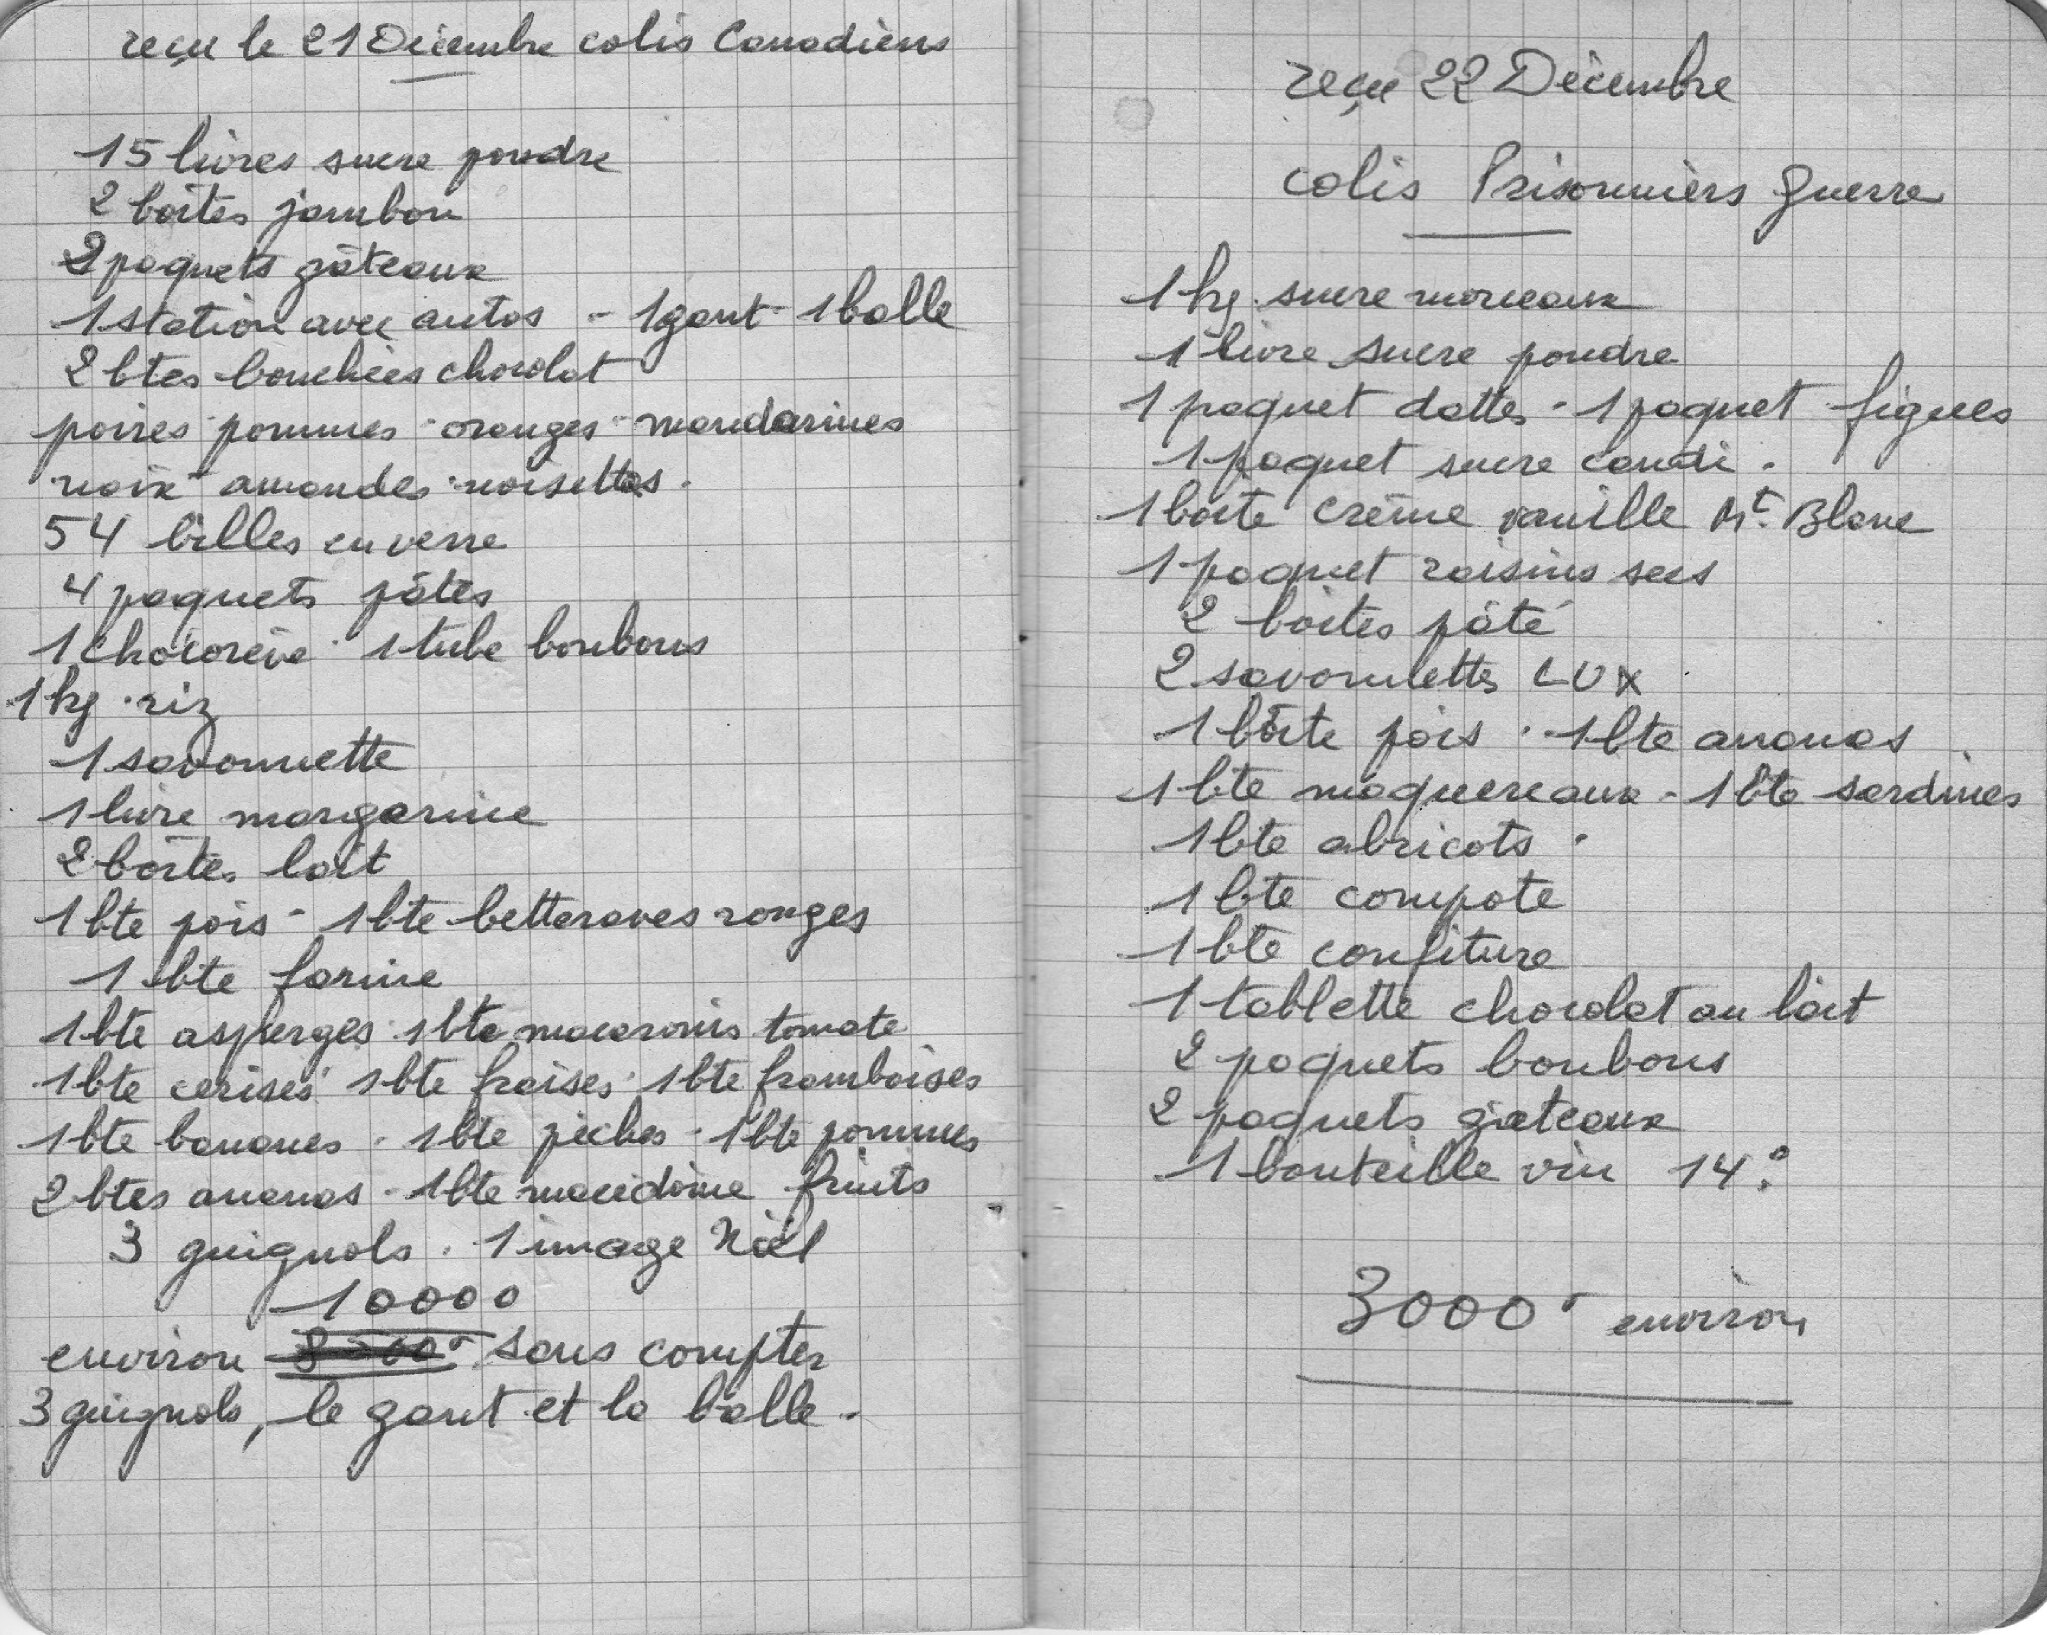 reçu le 21 Décembre colis Canadiens
15 livres sucre poudre
2 boîtes jambon
2 paquets gâteaux
1 station avec autos - 1 gant - 1 balle
2 btes bouchées chocolat
poires pommes oranges mandarines
noix amandes noisettes.
54 billes en verre
4 paquets pâtes
1 chicorée 1 tube bonbons
1 kg riz
1 savonnette
1 livre margarine
2 boîtes lait
1 bte pois - 1 bte betteraves rouges
1 bte farine
1 bte asperges 1 bte macaronis tomate
1 bte cerises 1 bte fraises 1 bte framboises
1 bte bananes - 1 bte pêches - 1 bte pommes
2 btes ananas - 1 bte macédoine fruits
3 guignols. 1 image Noël
10000
environ sans compter
3 guignols, le gant et la balle.
reçu 22 Décembre
colis Prisonniers guerre
1 kg sucre morceaux
1 livre sucre poudre
1 paquet dattes - 1 paquet figues
1 paquet sucre candi.
1 boîte crème vanille Mt. Blanc
1 paquet raisins secs
2 boîtes pâté
2 savonnettes LUX
1 boîte pois - 1 bte ananas
1 bte maquereaux - 1 bte sardines
1 bte abricots.
1 bte compote
1 bte confiture
1 tablette chocolat au lait
2 paquets bonbons
2 paquets gâteaux
1 bouteille vin 14°.
3000 environ